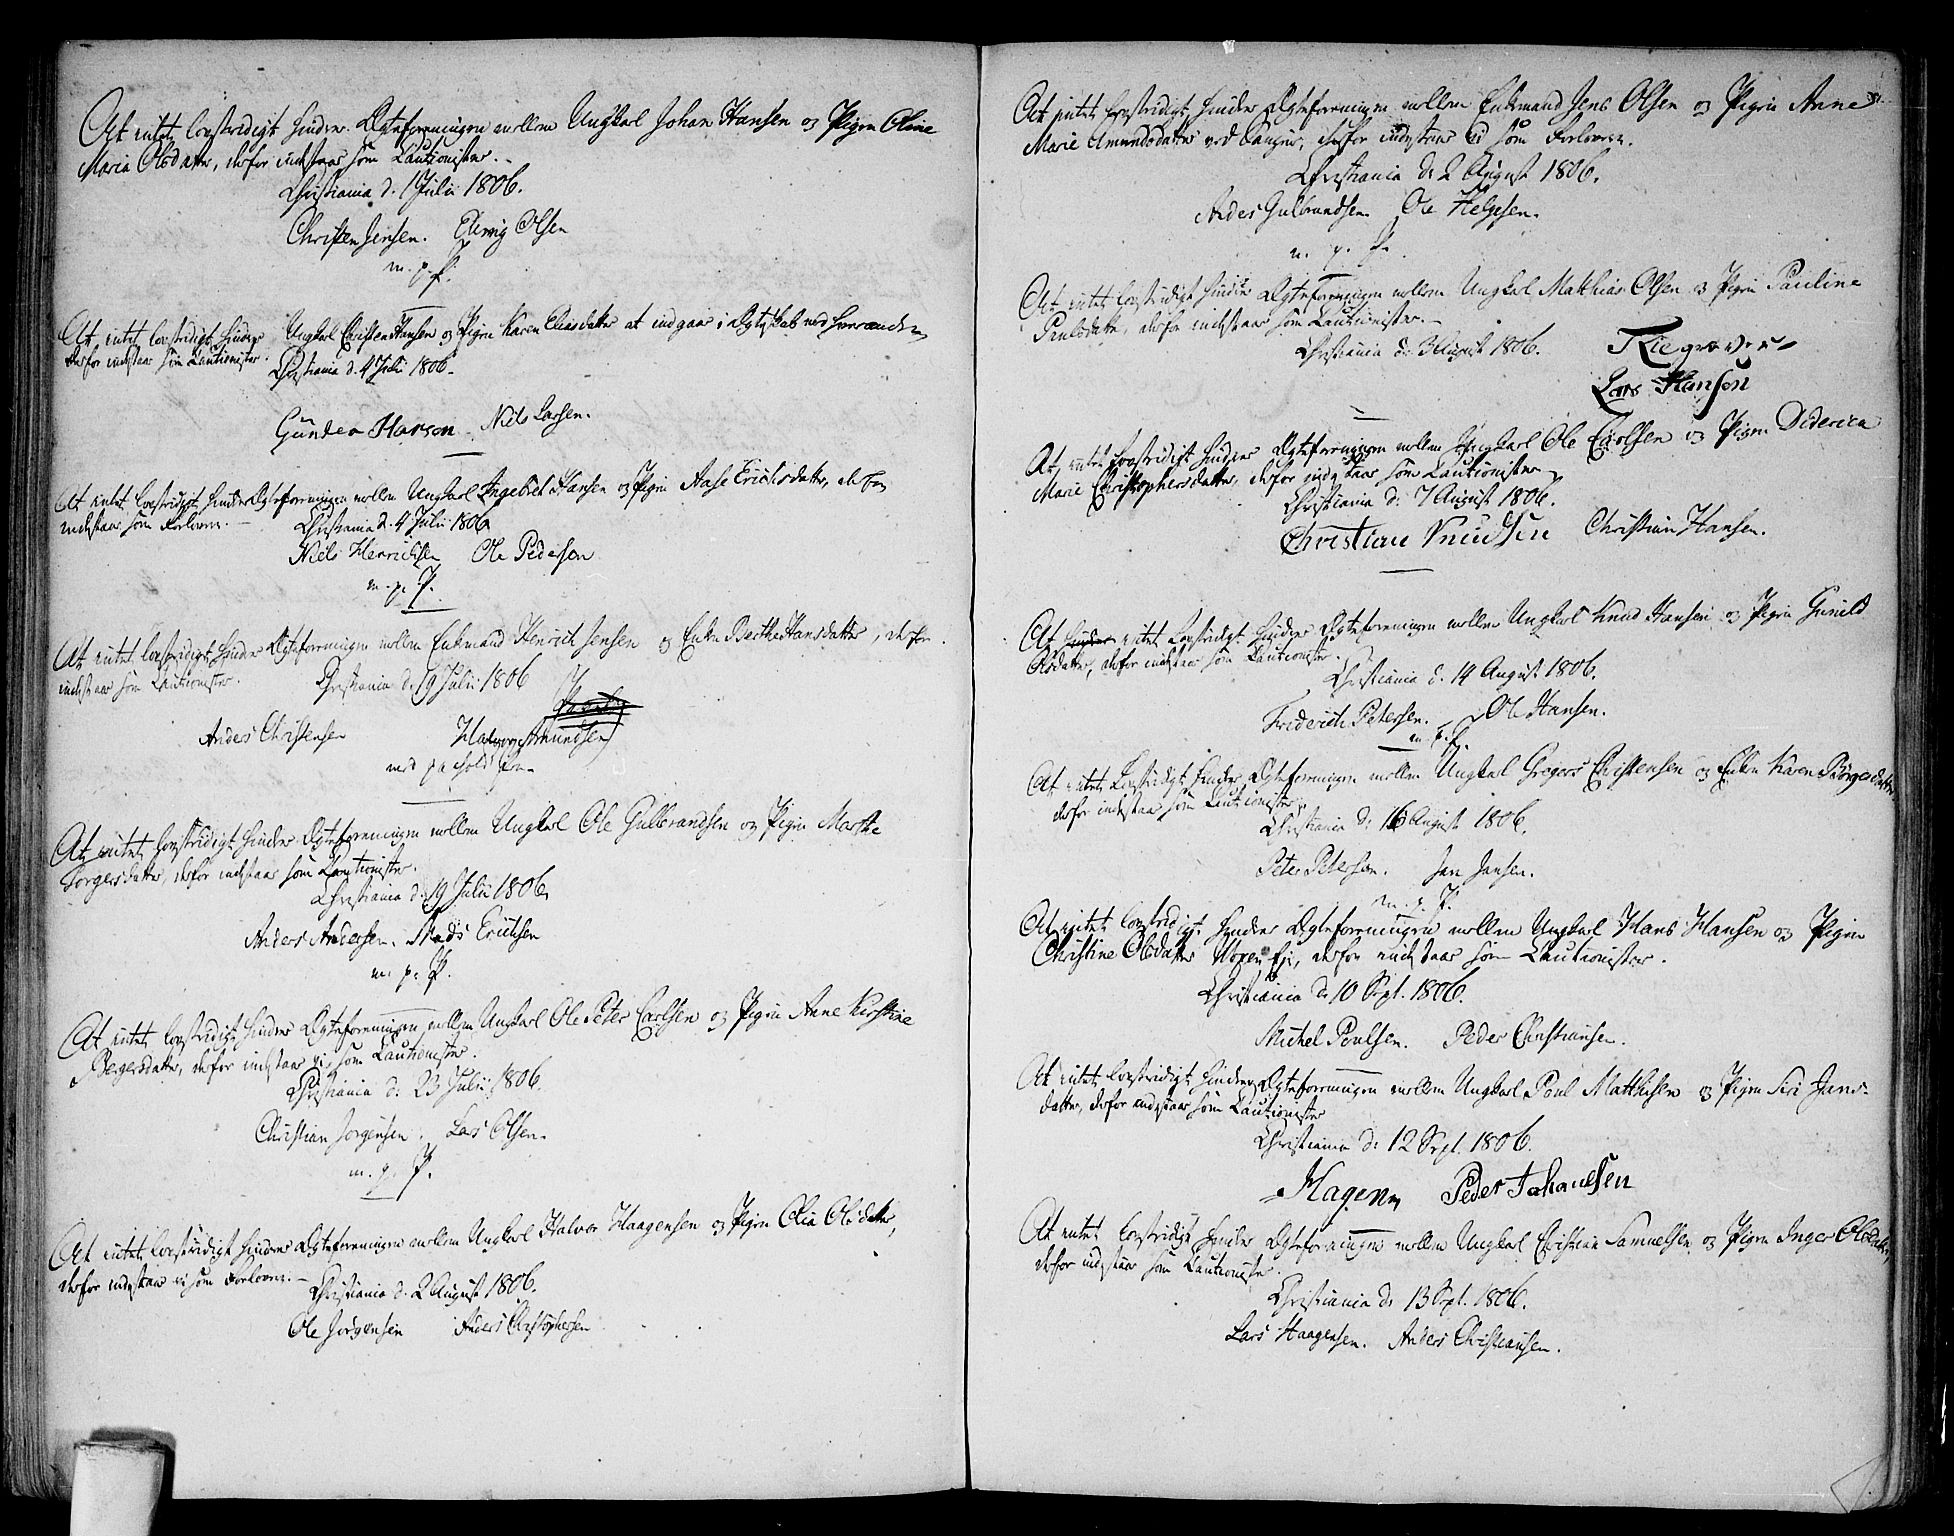 At intet lovstridigt hinder Ægteforeningen mellem Ungkarl Johan Hansen og Pigen Oline
Maria Olsdatter, derfor indstaar som Cautionister.
Christiania d. 1 Julii 1806.
Christen Jensen. Elling Olsen
m. p. P.
At intet lovstridigt hinder Ungkarl Christen Hansen og Pigen Karen Eliasdatter at indgaae i Ægteskab med hverandre
derfor indstaar som Cautionister.
Christiania d. 4 Julii 1806.
Gunder Hansen Niels Larsen.
At intet lovstridigt hinder Ægteforeningen mellem Ungkarl Ingebret Hansen og Pigen Aase Erichsdatter, derfor
indstaar som Forlovere.
Christiania d. 4 Julii 1806
Niels Henrichsen Ole Pedersen
m. p. P.
At intet lovstridigt hinder Ægteforeningen mellem Enkemand Henrich Jensen og Enken Berthe Hansdatter, derfor
indstaar som Cautionister.
Christiania d. 19 Julii 1806
Anders Christensen Halvor Amundsen
med paaholden Pen
At intet lovstridigt hinder Ægteforeningen mellem Ungkarl Ole Gulbrandsen og Pigen Marthe
Torgersdatter, derfor indstaar som Cautionister.
Christiania d. 19 Julii 1806
Anders Andersen. Mads Erichsen
m. p. P.
At intet lovstridigt hinder Ægteforeningen mellem Ungkarl Ole Peter Carlsen og Pigen Anne Kirstine
Bergersdatter, derfor indstaar vi som Cautionister.
Christiania d. 23 Julii 1806.
Christian Jørgensen. Lars Olsen.
m. p. P.
At intet lovstridigt hinder Ægteforeningen mellem Ungkarl Halvor Haagensen og Pigen Olia Olsdatter,
derfor indestaar vi som Forlovere.
Christiania d. 2 August 1806.
Ole Jørgensen Anders Christophersen
At intet lovstridigt hinder Ægteforeningen mellem Enkemand Jens Olsen og Pigen Anne
Marie Amundsdatter ved Tangen, derfor indestaar vi som Forlovere.
Christiania d. 2 August 1806.
Anders Gulbrandsen. Ole Helgesen.
m. p. P.
At intet lovstridigt hinder Ægteforeningen mellem Ungkarl Matthias Olsen og Pigen Pauline
Poulsdatter, derfor indstaar som Cautionister.
Christiania d. 3 August 1806.
Lars Hansen
At intet lovstridigt hinder Ægteforeningen mellem Ungkarl Ole Carlsen og Pigen Diderica
Marie Christophersdatter, derfor indestaar som Cautionister
Christiania d. 7 August 1806.
Christian Knudsen Christian Hansen.
At hinder intet lovstridigt hinder Ægteforeningen mellem Ungkarl Knud Hansen og Pigen Gunild
Olsdatter, derfor indstaar som Cautionister.
Christiania d. 14 August 1806.
Friderich Petersen. Ole Hansen.
m. p. P.
At intet lovstridigt hinder Ægteforeningen mellem Ungkarl Gregers Christensen og Enken Karen Børgesdatter
derfor indstaar som Cautionister.
Christiania d. 16 August 1806.
Peter Petersen. Jan Jansen.
m. p. P.
At intet lovstridigt hinder Ægteforeningen mellem Ungkarl Hans Hansen og Pigen
Christine Olsdatter derfor indstaar som Cautionister.
Christiania d. 10 Sept. 1806.
Michel Poulsen. Peder Christiansen.
At intet lovstridigt hinder Ægteforeningen mellem Ungkarl Poul Matthisen og Pigen Siri Jans-
datter, derfor indestaar som Cautionister
Christiania d. 12 Sept. 1806.
Hagen Peder Johanesen
At intet lovstridigt hinder Ægteforeningen mellem Ungkarl Christian Samuelsen og Pigen Inger Olsdatter,
derfor indestaar som Cautionister.
Christiania d. 13 Sept. 1806.
Lars Haagensen. Anders Christiansen.